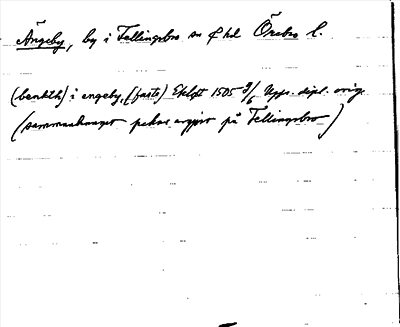 Ängeby, by i Fellingsbro sn o hd Örebro l.
(benkth) i engeby, (fasta) Ekeløst 1505 9/6 Upps. dipl. orig.
(sammanhanget pekar avgjort på Fellingsbro)